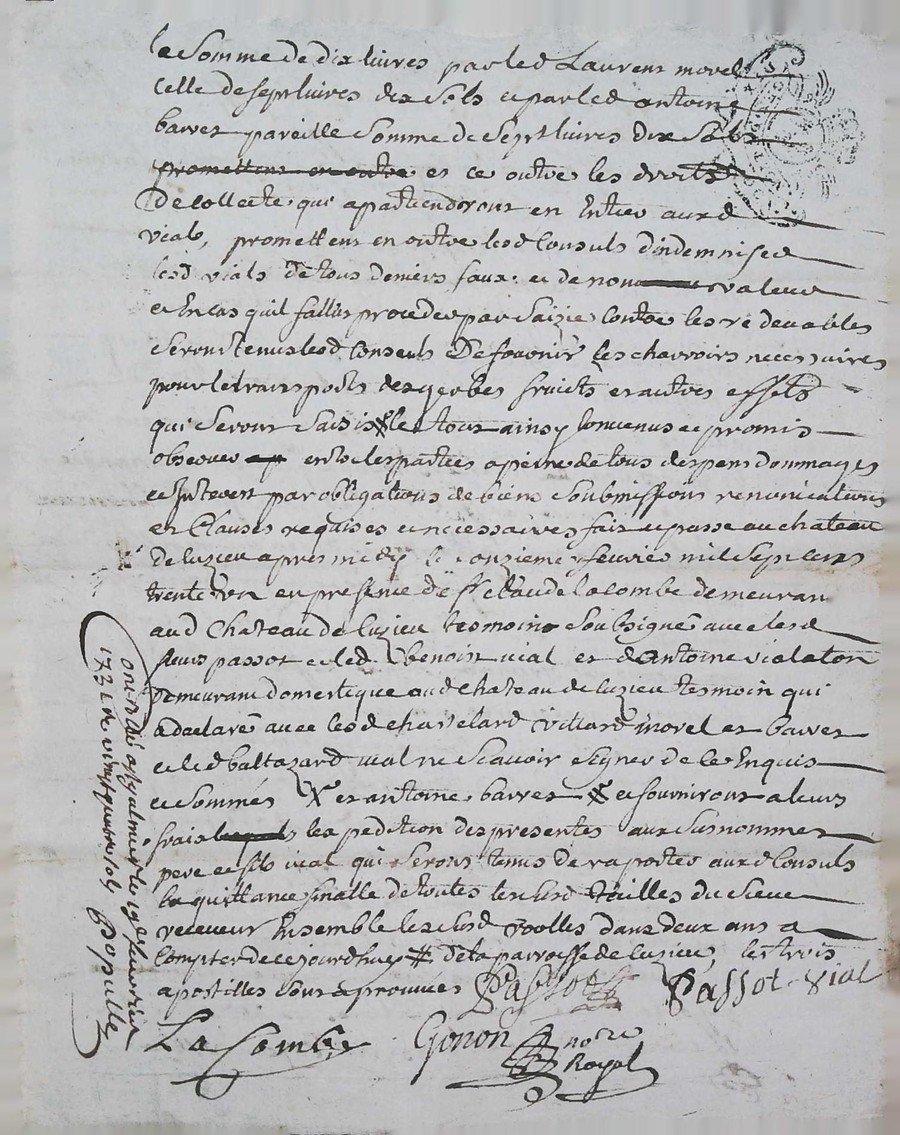 la Somme de dix livres par led Laurens morel
celle de sept livres dix Sols et par led antoine
barret pareille Somme de Sept livres dix Sols
promettens en outre et ce outre les droits
De collecte qui apartiendront en Entier aux d
vials, promettent en outre lesd Consuls d'indemniser
lesd vials de tous deniers faux et de non valeur
et En cas quil fallut proceder par Saizie contre les redevables
Seront tenus lesd Consuls De fournir les charroirs necessaires
pour le transports des gerbes fruicts et autres effets
qui Seront Saisis le tout ainsy Convenus et promis
observer entre les parties a peine de tous despens dommages
et Interest par obligations de biens Soubmissions renonciations
et Clauses requises et necessaires fait et passé au chateau
de luzieu apres midy le onzieme feuvrier mil Sept cens
trente un en presence de Sr Claude lacombe demeurant
aud Chateau de luzieu tesmoins Soubsigné avec lesd
sieurs passot et led benoist vial et d antoine violaton
Demeurant domestique aud chateau de luzieu tesmoin qui
a declaré avec lesd chastelard villard morel et barret
et led baltazard vial ne Scavoir Signer de ce Enquis
et Sommés X et antoine barret # et fourniront a leurs
frais lexpedition des presentes aux Susnommes
pere et fils vial qui Seront tenus de raporter aux d Consuls
la quittance finalle de toutes lesd tailles du Sieur
receveur Ensemble lesd roolles dans deux ans a
Compter de ce jourdhuy # de la parroisse de luzieu, les trois
apostilles cons aprouvées Passot Passot Vial
La Combe Gonon nore
Royal
1731 Re vingt quatre sols Populle